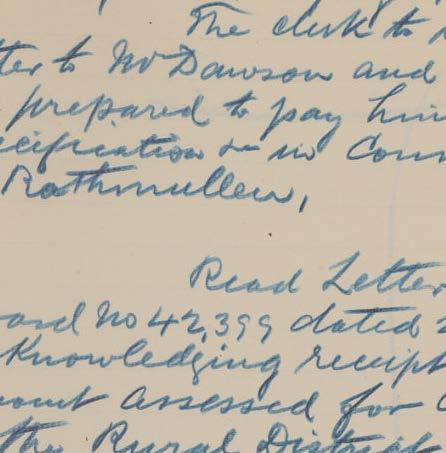 The clerk to
tter to Mr Dawson and
prepared to pay him
cification &c in Conn
Rathmullen,
Read Letter
oard No 42,399 dated
cknowledging receipt
mount assessed for
the Rural District